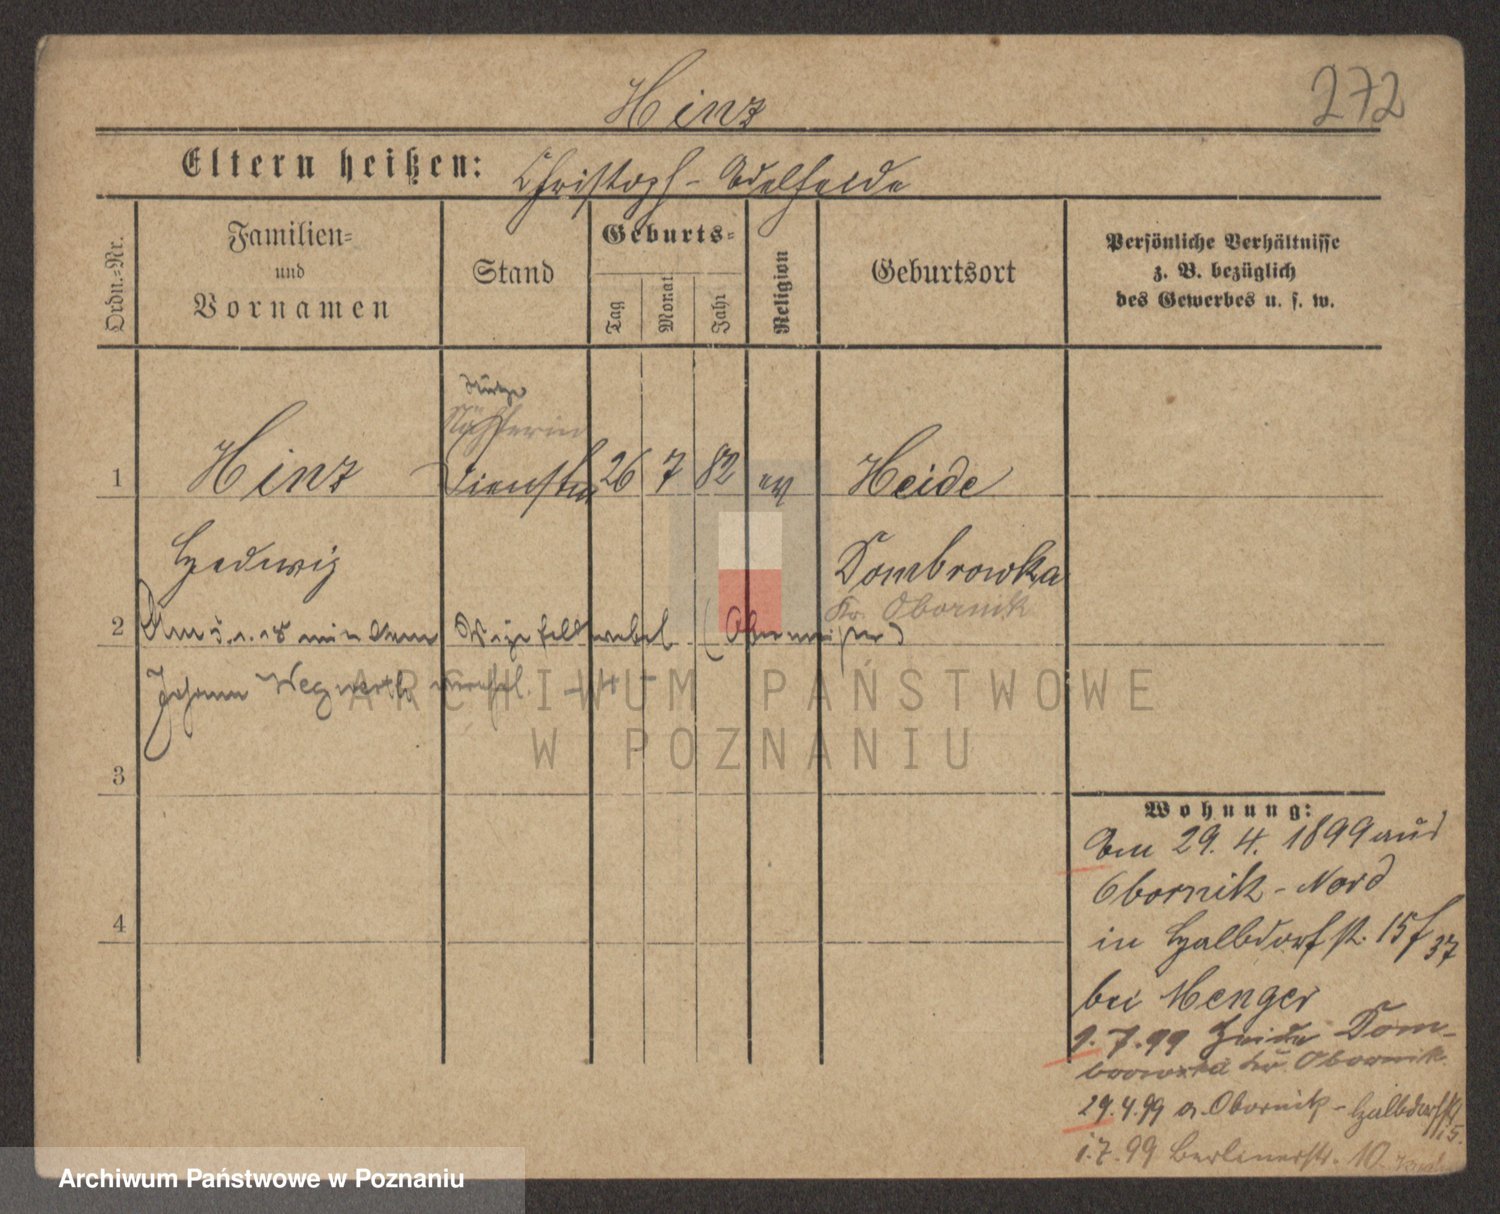 272
Hinz
Eltern heißen: Christoph - Adelheide
Ordn.=Nr.
Familien=
und
Vornamen
Stand
Geburts=
Tag
Monat
Jahr
Religion
Geburtsort
Persönliche Verhältnisse
z. B. bezüglich
des Gewerbes u. s. w.
Stütze
Nähterin
1 Hinz Dienstm 26 7 82 ev Heide
Hedwig Dombrowka
Kr. Obornik
2 Am 5.1.18 mit dem Vizefeldwebel
Johann Wegwerth verehel.
ARCHIWUM PAŃSTWOWE
W POZNANIU
3
4
Wohnung:
Am 29. 4. 1899 aus
Obornik - Nord
in Halbdorfst. 15 37
bei Menger
9. 7. 99 Heide Dom-
browka Kr Obornik
29.4.99 a. Obornik - Halbdorfstr
15.
1.7.99 Berlinerstr. 10
Archiwum Państwowe w Poznaniu